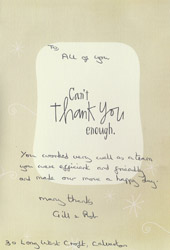 To
All of you
Can't
thank you
enough.
You worked very well as a team
you were efficient and friendly
and made our move a happy day
many thanks
30 Long Wood Croft,